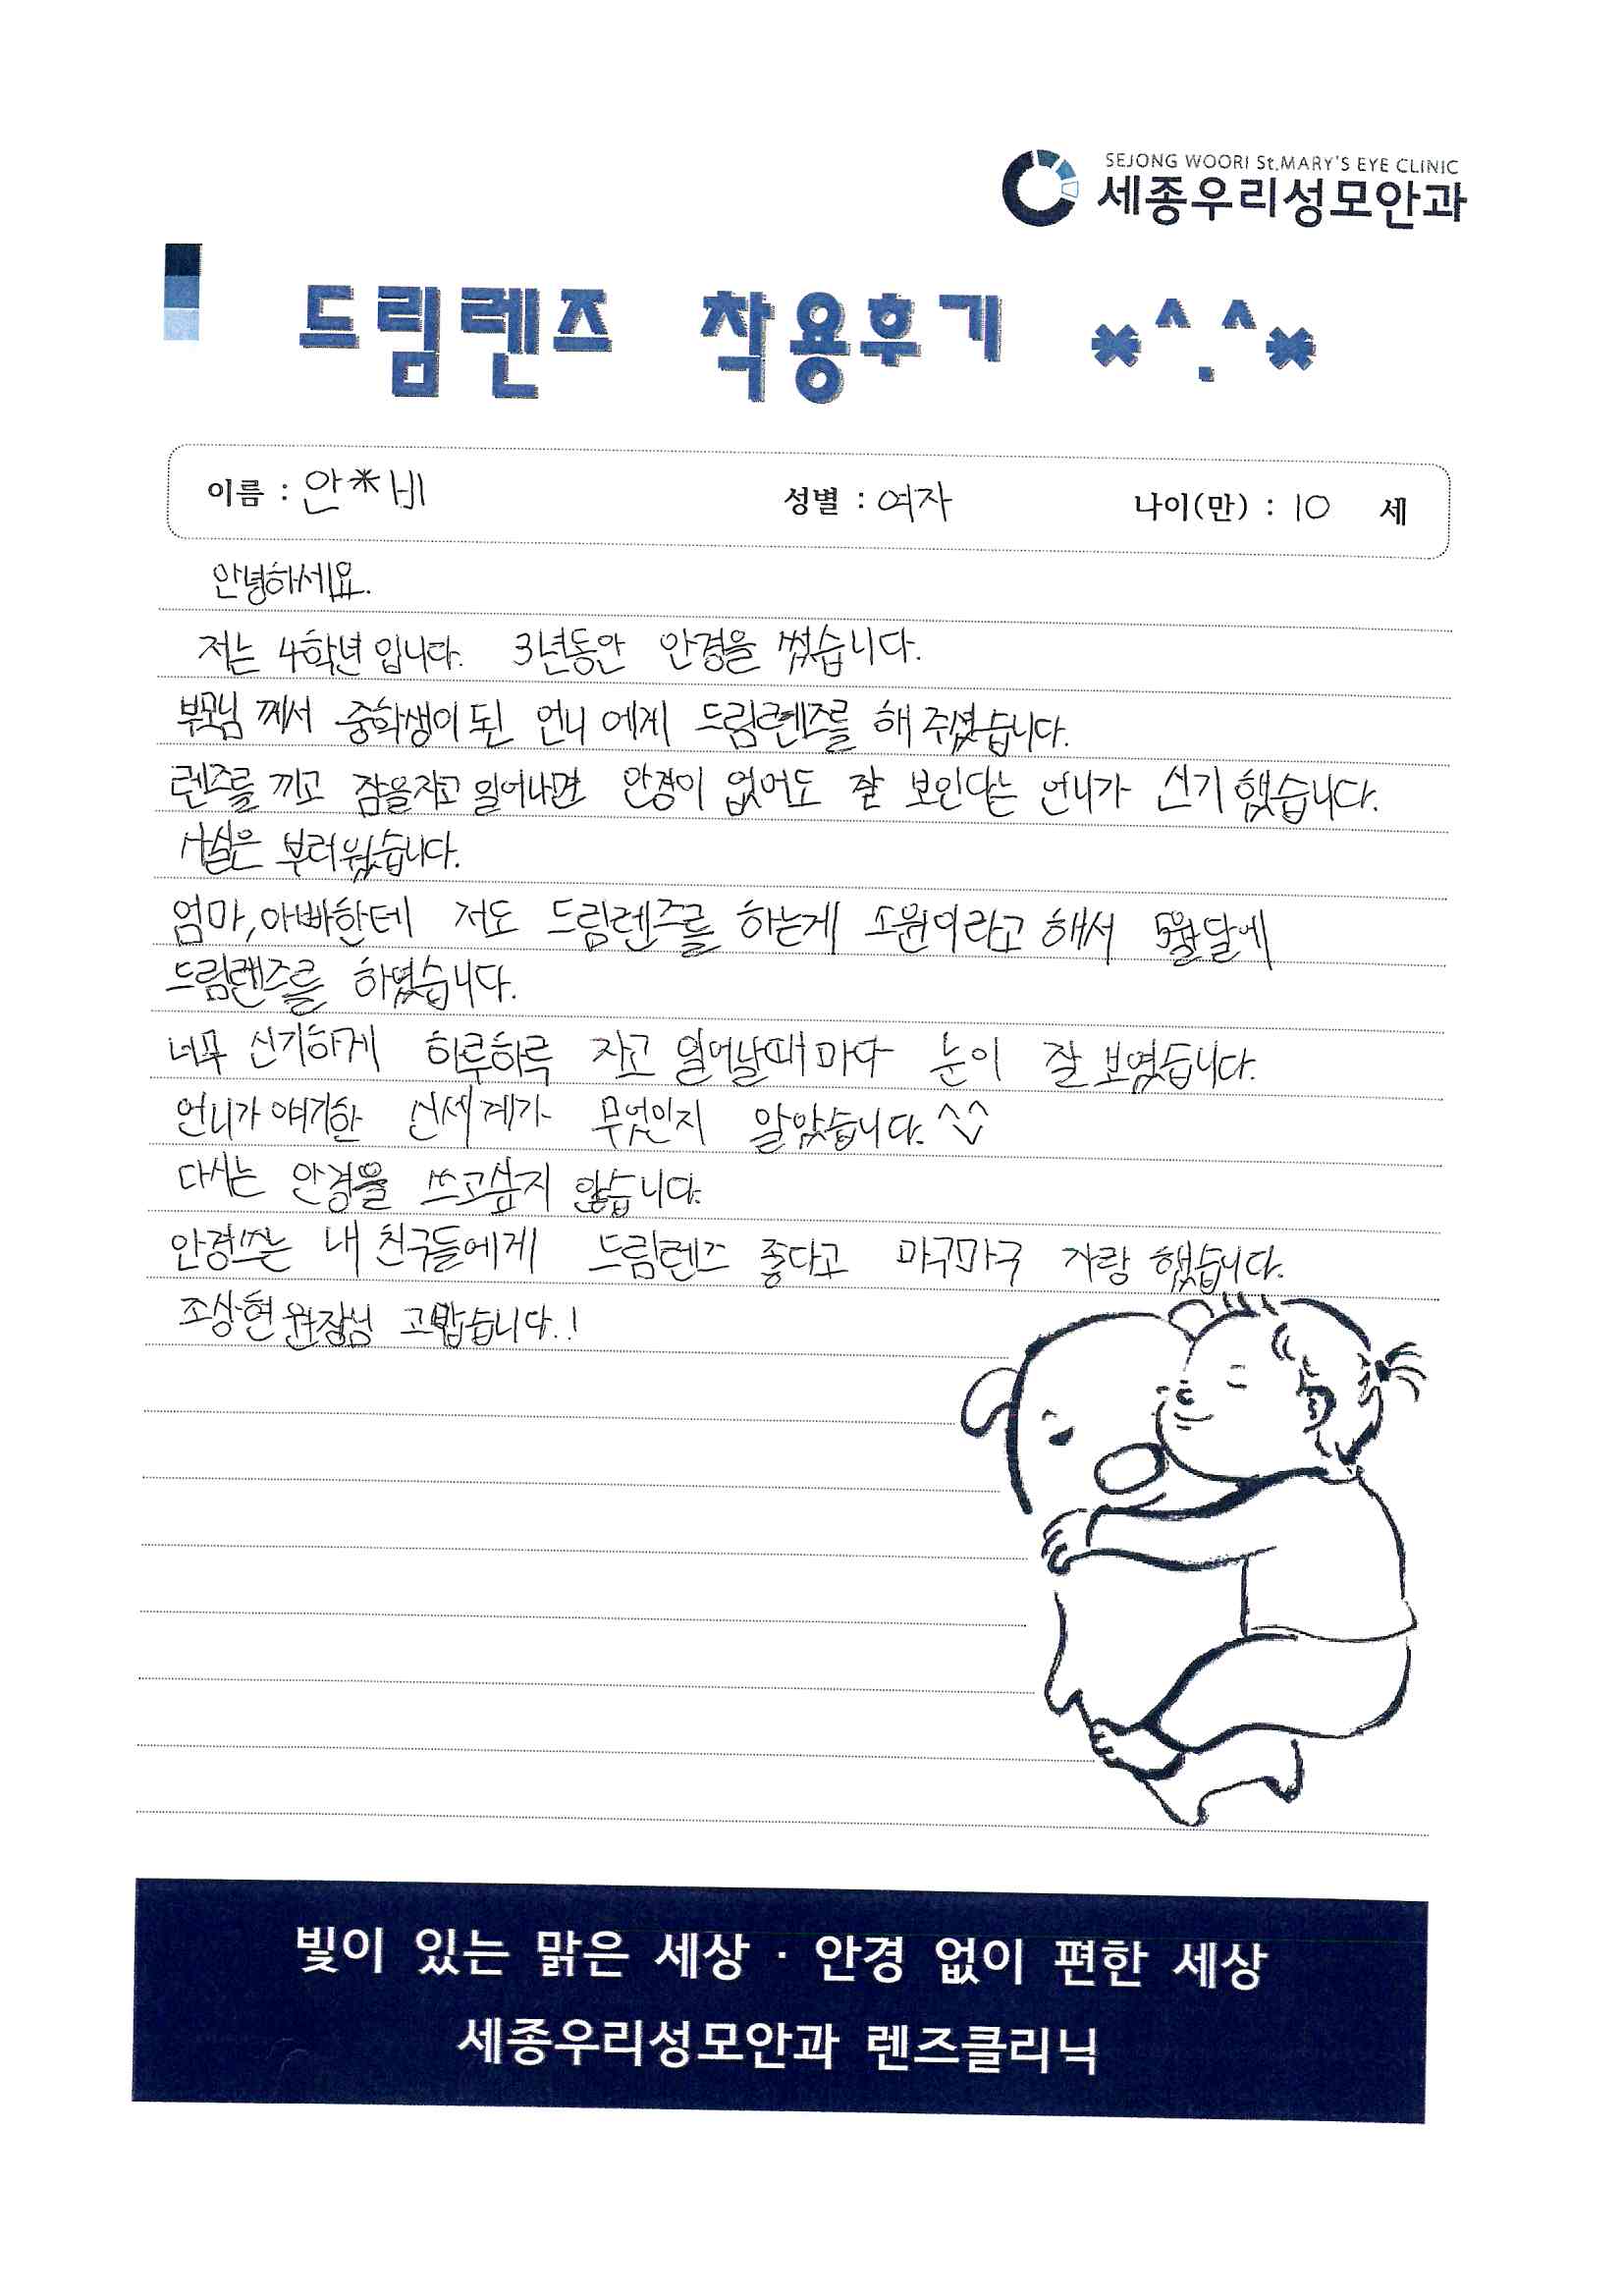 SEJONG WOORI St.MARY'S EYE CLINIC
세종우리성모안과
드림렌즈 착용후기 *^.^*
이름 : 안*비 성별 : 여자 나이(만) : 10 세
안녕하세요.
저는 4학년 입니다. 3년동안 안경을 썼습니다.
부모님 께서 중학생이 된 언니 에게 드림렌즈를 해 주셨습니다.
렌즈를 끼고 잠을자고 일어나면 안경이 없어도 잘 보인다는 언니가 신기 했습니다.
사실은 부러웠습니다.
엄마,아빠한테 저도 드림렌즈를 하는게 소원이라고 해서 5월달에
드림렌즈를 하였습니다.
너무 신기하게 하루하루 자고 일어날때 마다 눈이 잘 보였습니다.
언니가 얘기한 신세계가 무엇인지 알았습니다.^^
다시는 안경을 쓰고싶지 않습니다.
안경쓰는 내 친구들에게 드림렌즈 좋다고 마구마구 자랑 했습니다.
조상현 원장님 고맙습니다.!
빛이 있는 맑은 세상 · 안경 없이 편한 세상
세종우리성모안과 렌즈클리닉